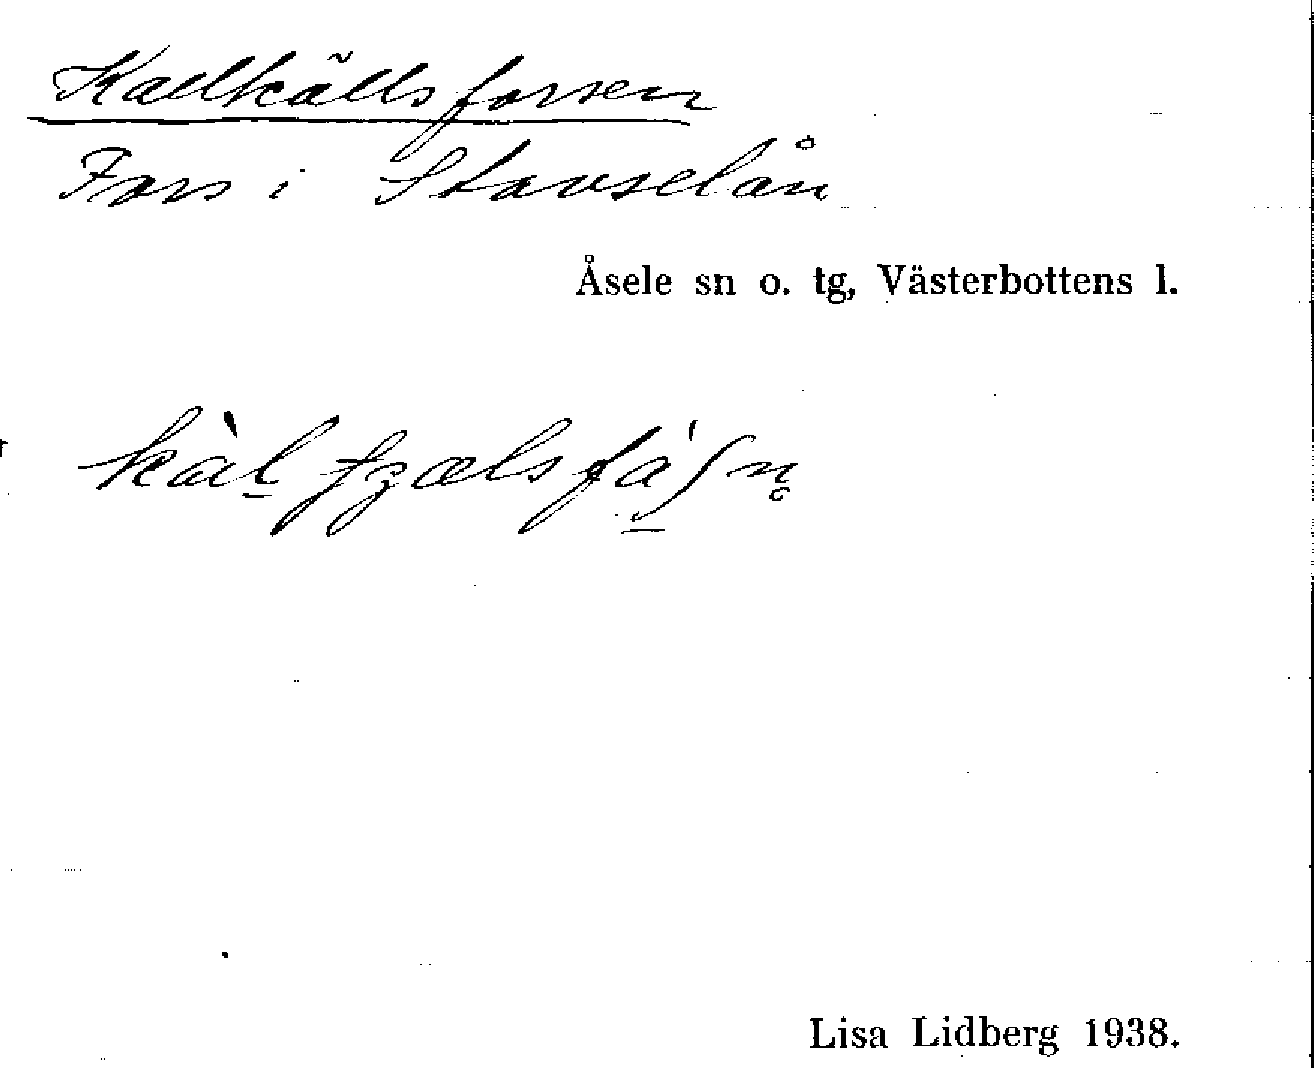 Kallkällsforsen
Fors i Stavselån
Åsele sn o. tg, Västerbottens l.
Lisa Lidberg 1938.